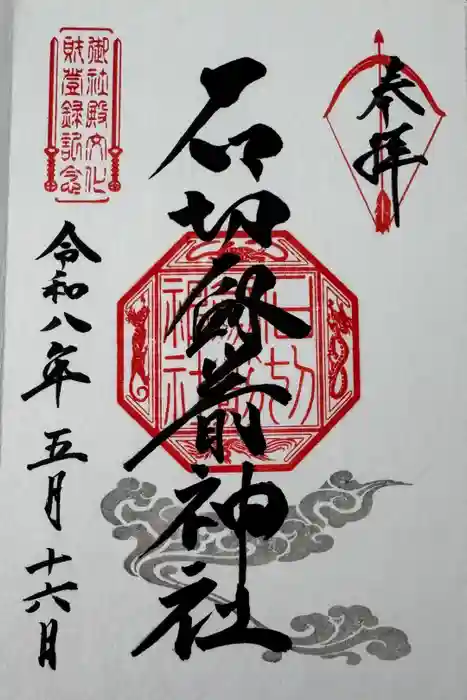 奉拝
石切劔箭神社
御社殿文化
財登録記念
令和八年五月十六日